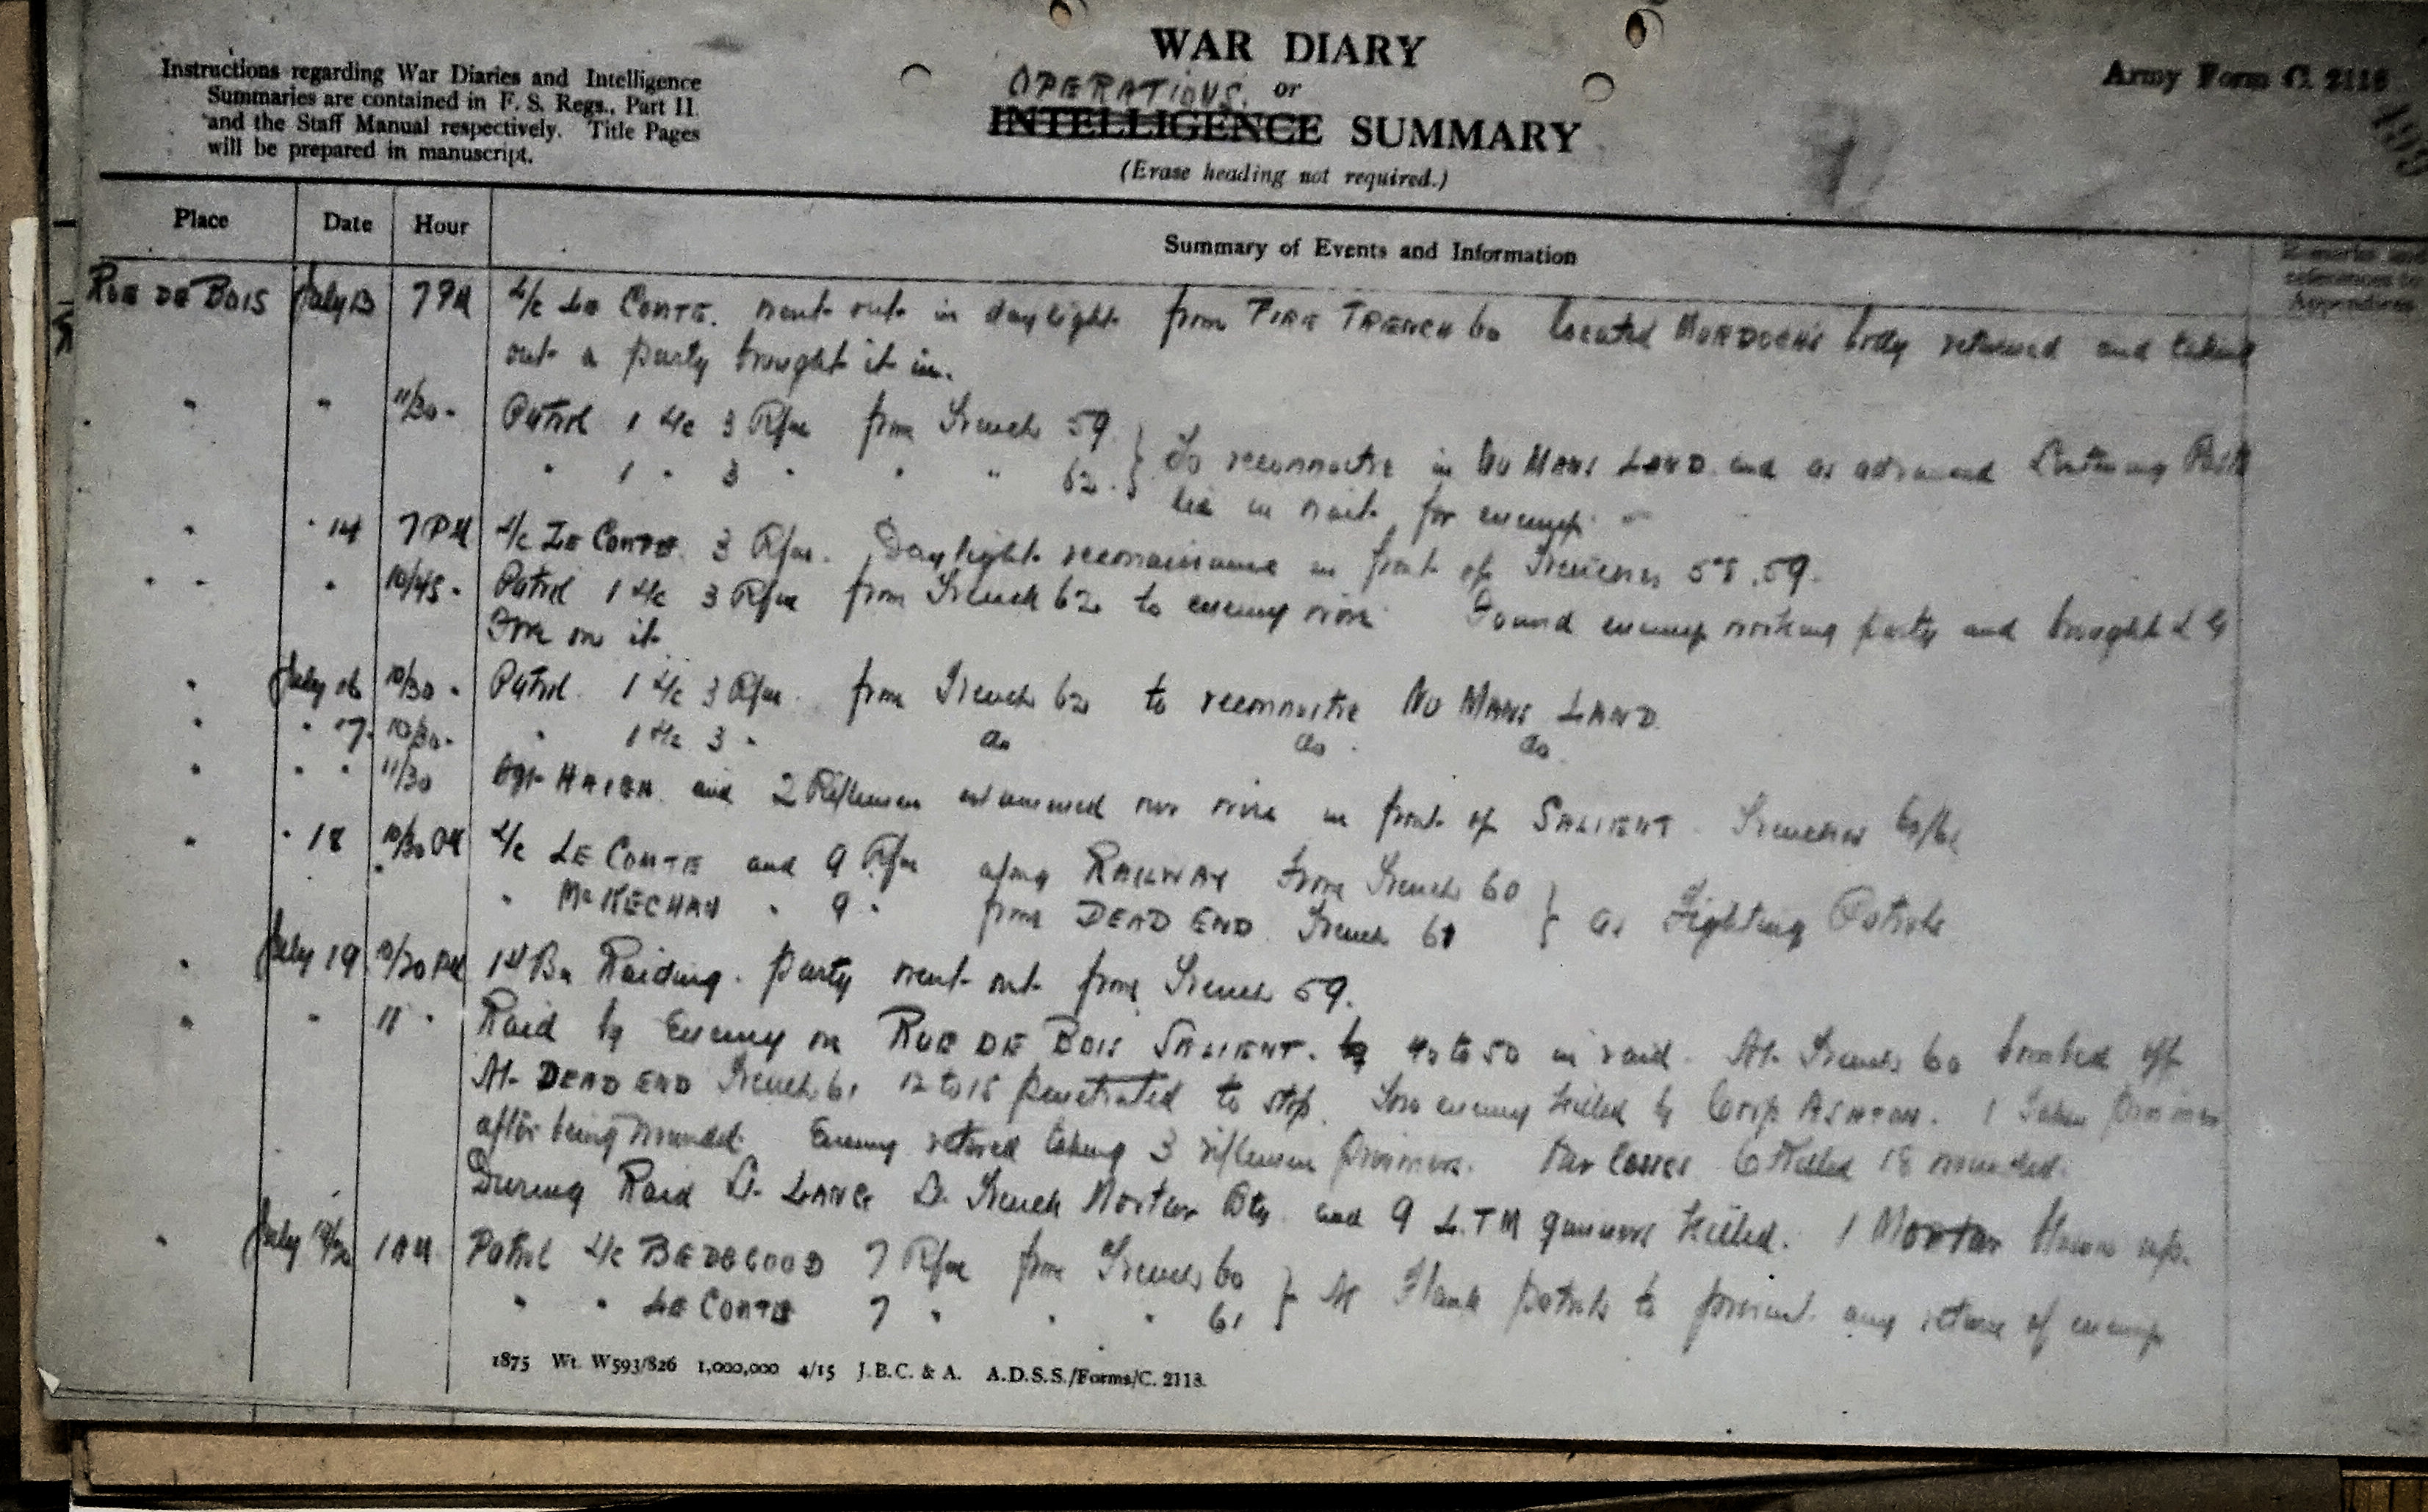 WAR DIARY
OPERATIONS. or
INTELLIGENCE SUMMARY
(Erase heading not required.)
Instructions regarding War Diaries and Intelligence
Summaries are contained in F. S. Regs., Part II.
and the Staff Manual respectively. Title Pages
will be prepared in manuscript.
Army Form C. 2118
Place Date Hour Summary of Events and Information Remarks and
references to
Appendices
RUE DE BOIS July 13 7 PM L/c LE CONTE. went out in daylight from FIRE TRENCH 60 located MURDOCH'S body returned and taking
out a party brought it in.
" " 11/30 " Patrol 1 L/c 3 Rfm from Trench 59 } To reconnoitre in NO MANS LAND and as advanced Listening Posts
" 1 " 3 " " " 62. } lie in wait for enemy.
" " 14 7 PM L/c LE CONTE. 3 Rfm. Daylight reconnaissance in front of Trenches 58.59.
" " " 10/45 " Patrol 1 L/c 3 Rfm from Trench 62 to enemy wire. Found enemy working party and brought L G
Fire on it.
" July 16 10/30 " Patrol. 1 L/c 3 Rfm. from Trench 62 to reconnoitre NO MANS LAND.
" " 17 10/30 " " 1 L/c 3 " do do do
" " " 11/30 Sgt HAIGH and 2 Riflemen examined our wire in front of SALIENT. Trenches 60/61
" " 18 10/30 PM L/c LE CONTE and 9 Rfm along RAILWAY from Trench 60 } as Fighting Patrols
" " McKECHAN " 9 " from DEAD END Trench 61 }
" July 19 10/30 PM 1st Bn Raiding party went out from Trench 59.
" " 11 " Raid by Enemy on RUE DE BOIS SALIENT. 40 to 50 in raid. At Trench 60 bombed off
At DEAD END Trench 61 12 to 15 penetrated to stop. Two enemy killed by Corp ASHTON. 1 taken prisoner
after being wounded. Enemy retired taking 3 riflemen prisoners. Our losses 6 killed 18 wounded.
During Raid Lt. LANG Lt. Trench Mortar Bty and 9 L.T.M gunners killed. 1 Mortar blown up.
" July 19/20 1 AM Patrol L/c BEDGGOOD 7 Rfm from Trench 60 } As Flank patrols to prevent any return of enemy
" " LE CONTE 7 " " " 61 }
1875 Wt. W593/826 1,000,000 4/15 J.B.C. & A. A.D.S.S./Forms/C. 2118.